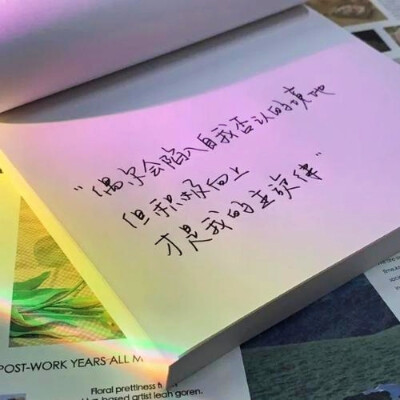 “偶尔会陷入自我否认的境地
但积极向上
才是我的主旋律”
POST-WORK YEARS ALL M
Floral prettiness &
based artist leah goren.